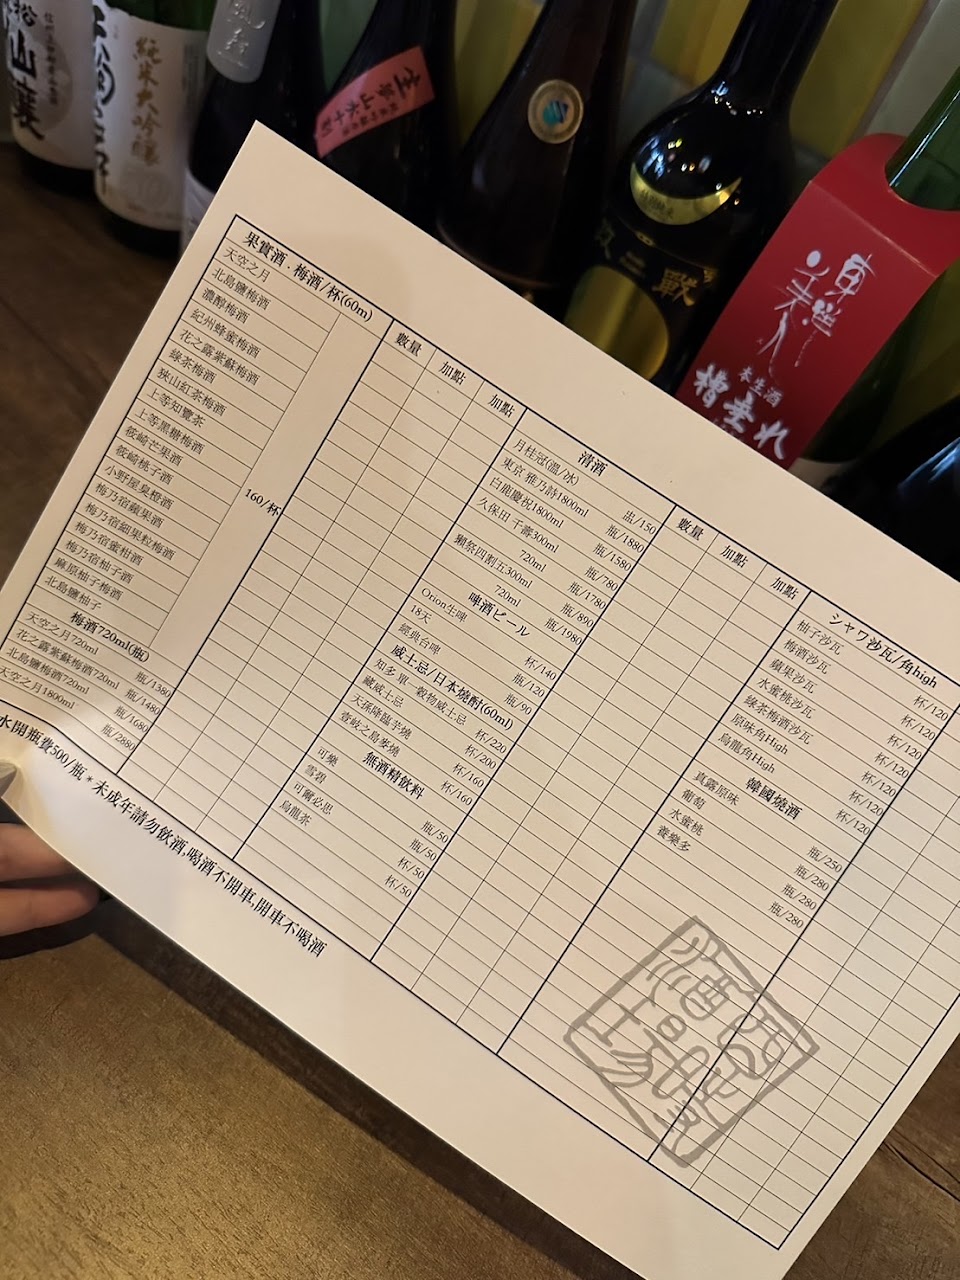 純米大吟醸
本生酒
槽垂れ
果實酒．梅酒/杯(60m)
數量
加點
加點
天空之月
北島鹽梅酒
濃醇梅酒
紀州蜂蜜梅酒
花之露紫蘇梅酒
綠茶梅酒
狹山紅茶梅酒
上等知覽茶
上等黑糖梅酒
筱崎芒果酒
筱崎桃子酒
小野屋臭橙酒
梅乃宿蘋果酒
梅乃宿細果粒梅酒
梅乃宿蜜柑酒
梅乃宿柚子酒
麻原柚子梅酒
北島鹽柚子
160/杯
梅酒720ml(瓶)
天空之月720ml 瓶/1380
花之露紫蘇梅酒720ml 瓶/1480
北島鹽梅酒720ml 瓶/1680
天空之月1800ml 瓶/2880
清酒
數量
加點
加點
月桂冠(溫/冰) 盅/150
東京 雅乃詩1800ml 瓶/1880
白鹿慶祝1800ml 瓶/1580
久保田 千壽300ml 瓶/780
720ml 瓶/1780
獺祭四割五300ml 瓶/890
720ml 瓶/1980
啤酒ビール
Orion生啤 杯/140
18天 瓶/120
經典台啤 瓶/90
威士忌/日本燒酎(60ml)
知多 單一穀物威士忌 杯/220
藏威士忌 杯/200
天孫降臨芋燒 杯/160
壹岐之島麥燒 杯/160
無酒精飲料
可樂 瓶/50
雪碧 瓶/50
可爾必思 杯/50
烏龍茶 杯/50
シャワ沙瓦/角high
柚子沙瓦 杯/120
梅酒沙瓦 杯/120
蘋果沙瓦 杯/120
水蜜桃沙瓦 杯/120
綠茶梅酒沙瓦 杯/120
原味角High 杯/120
烏龍角High 杯/120
韓國燒酒
真露原味 瓶/250
葡萄 瓶/280
水蜜桃 瓶/280
養樂多 瓶/280
水開瓶費500/瓶 * 未成年請勿飲酒,喝酒不開車,開車不喝酒